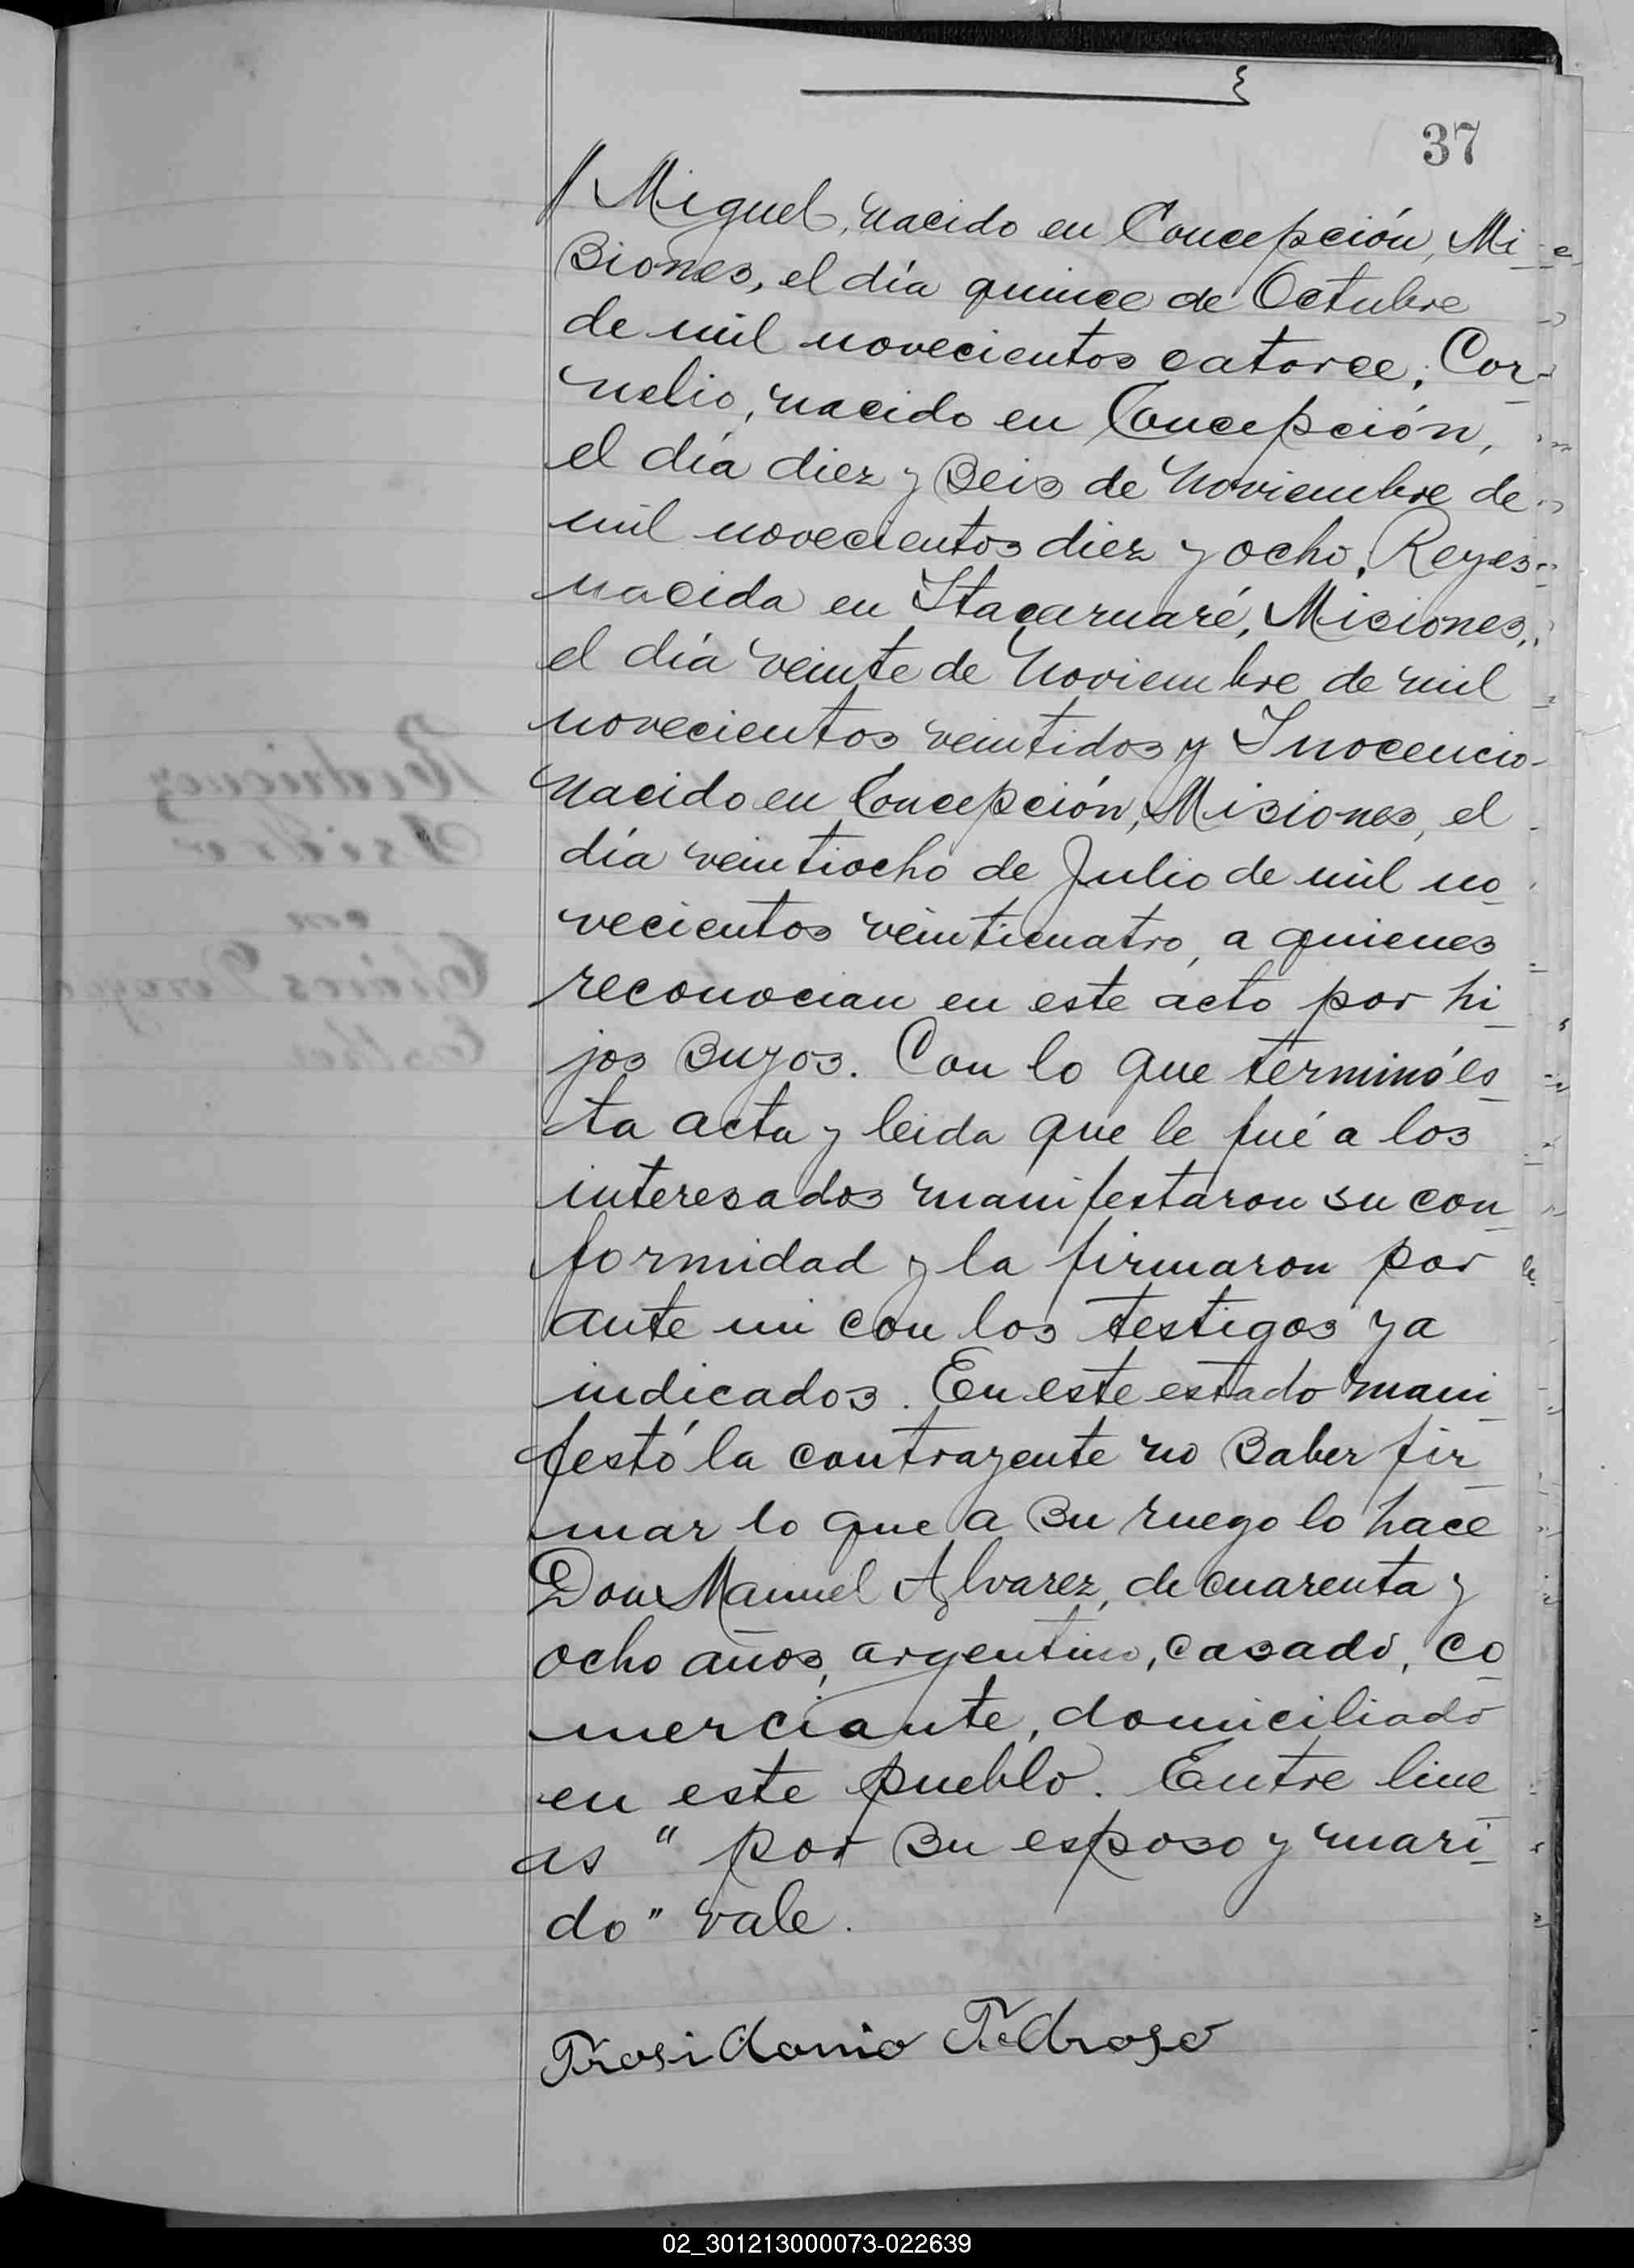 37
// Miguel, nacido en Concepción, Mi
siones, el día quince de Octubre
de mil novecientos catorce; Cor-
nelio, nacido en Concepción,
el día diez y seis de Noviembre de
mil novecientos diez y ocho, Reyes
nacida en Itacaruaré, Misiones,
el día veinte de Noviembre de mil
novecientos veintidos y Inocencio
nacido en Concepción, Misiones, el
día veintiocho de Julio de mil no
vecientos veinticuatro, a quienes
reconocian en este acto por hi
jos suyos. Con lo que terminó es
ta acta y leida que le fué a los
interesados manifestaron su con
formidad y la firmaron por
ante mi con los testigos ya
indicados. En este estado mani
festó la contrayente no saber fir
mar lo que a su ruego lo hace
Don Manuel Alvarez, de cuarenta y
ocho años, argentino, casado, co
merciante, domiciliado
en este pueblo. Entre line
as " por su esposo y mari
do " vale.
Pedroso
02_301213000073-022639